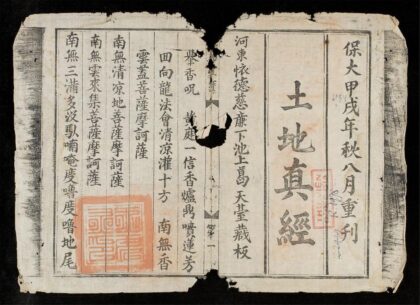 保大甲戌年秋八月重刊
土地真經
河東懐德慈廉下池上葛天室藏板
舉香呪
一信香爐熱噴蓮芳
回向龍法會清凉灌十方 南無香
雲蓋菩薩摩訶薩
南無清凉地菩薩摩訶薩
南無雲來集菩薩摩訶薩
南無三滿多没馱喃唵度嚕度嚕地尾